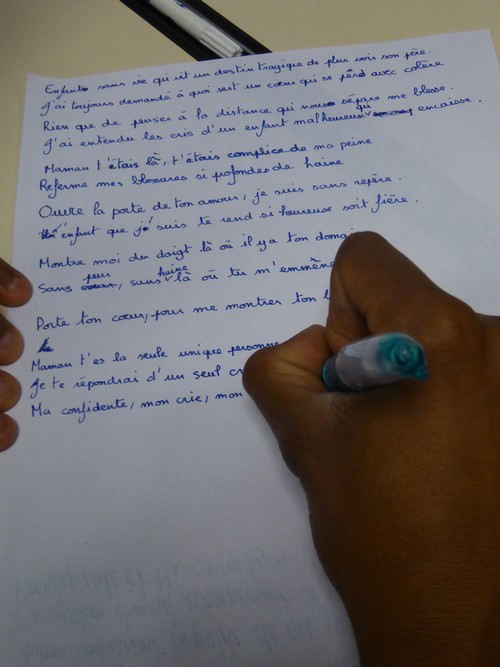 Enfants sans vie qui vit un destin tragique de plus voir son père.
J'ai toujours demandé à quoi sert un cœur qui se perd avec colère
Rien que de penser à la distance qui nous sépare me blesse.
J'ai entendu les cris d'un enfant malheureux qui encaisse.
Maman t'étais là, t'étais complice de ma peine
Referme mes blessures si profondes de haine
Ouvre la porte de ton amour, je suis sans repère.
enfant que je suis te rend si heureuse soit fière.
Montre moi du doigt là où il y a ton
Sans peur, sans haine là où tu m'emmène
Porte ton cœur, pour me montrer ton
Maman t'es la seule unique personne
Je te répondrai d'un seul
Ma confidente, mon crie, mon